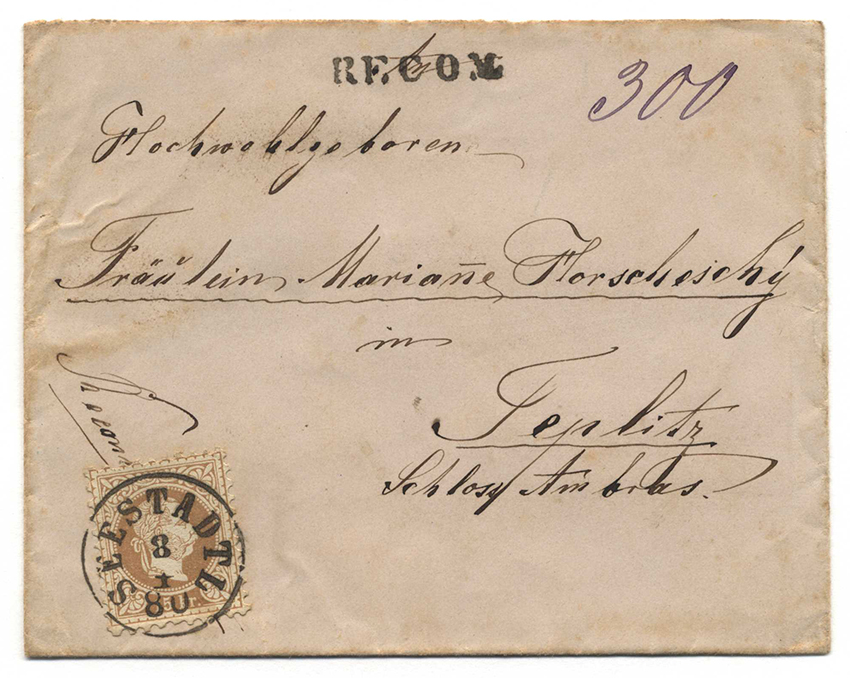 RECOM
300
Hochwohlgeboren
Fräulein Mariañe Florscheschÿ
in
Teplitz
Schloss Ambras.
Recom
SEESTADTL
8
I
80